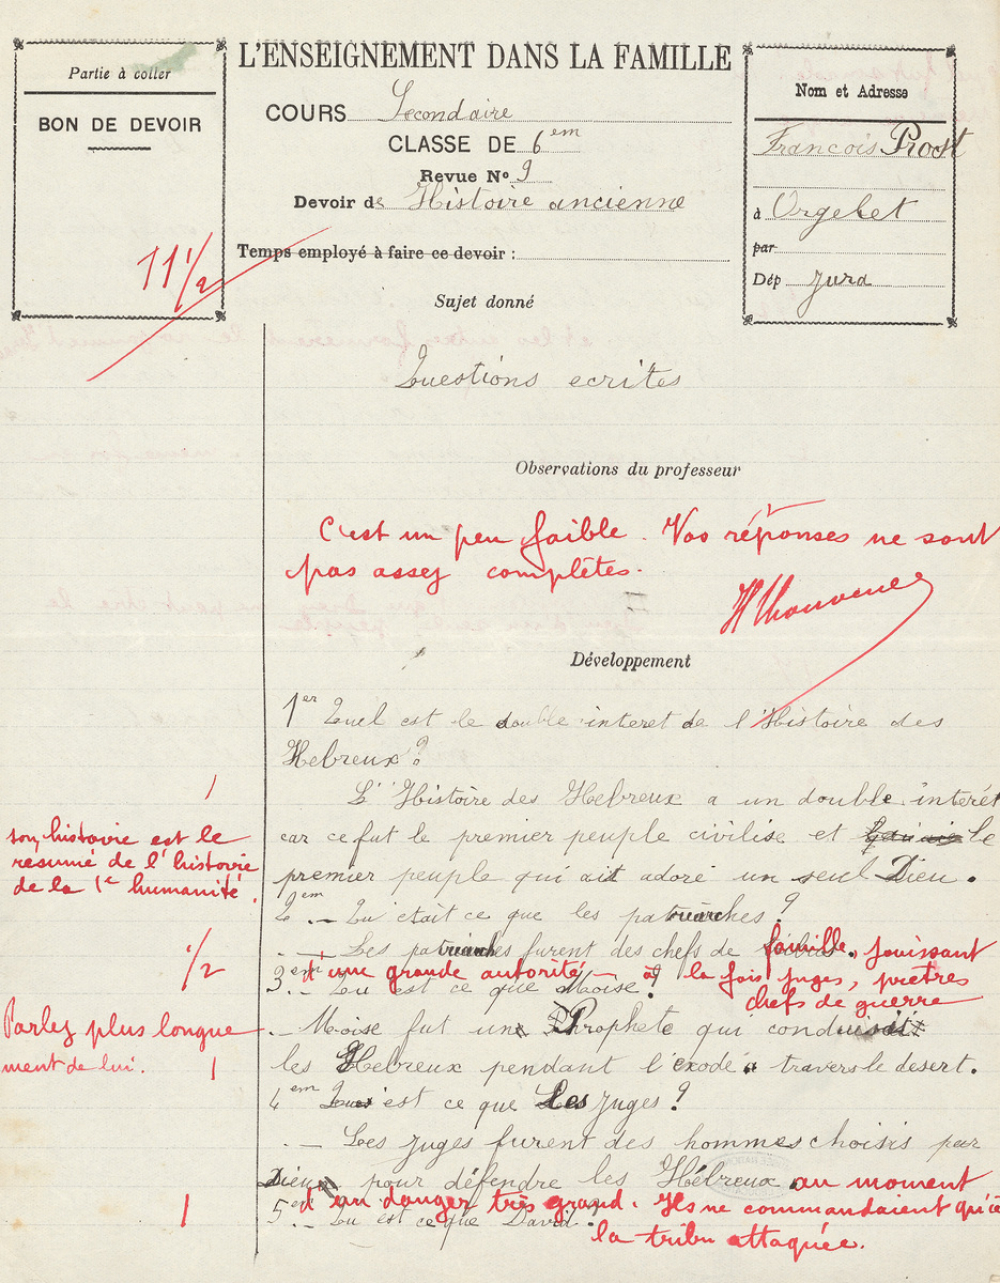 Partie à coller
BON DE DEVOIR
11 1/2
L'ENSEIGNEMENT DANS LA FAMILLE
COURS Secondaire
CLASSE DE 6em
Revue No 9
Devoir de Histoire ancienne
Temps employé à faire ce devoir :
Nom et Adresse
Francois Prost
à Orgelet
par
Dép Jura
Sujet donné
Questions ecrites
Observations du professeur
C'est un peu faible. Vos réponses ne sont
pas assez complètes.
Développement
1er Quel est le double interet de l'Histoire des
Hebreux ?
1
L'Histoire des Hebreux a un double interét
son histoire est le
resumé de l'histoire
de la 1e humanité.
car ce fut le premier peuple civilise et le
premier peuple qui ait adoré un seul Dieu.
2em .- Qu'était ce que les patriarches ?
1/2
.- Les patriarches furent des chefs de famille, jouissant
d'une grande autorité - à la fois juges, prêtres
chefs de guerre
3em .- Qu est ce que Moise ?
Parlez plus longue
ment de lui. 1
.- Moise fut un Prophete qui conduisit
les Hebreux pendant l'exode à travers le desert.
4em Qu'est ce que Les Juges ?
.- Les Juges furent des hommes choisis par
Dieu pour défendre les Hébreux au moment
d'un danger très grand. Ils ne commandaient qu'à
la tribu attaquée.
1
5em .- Qu est ce que David ?